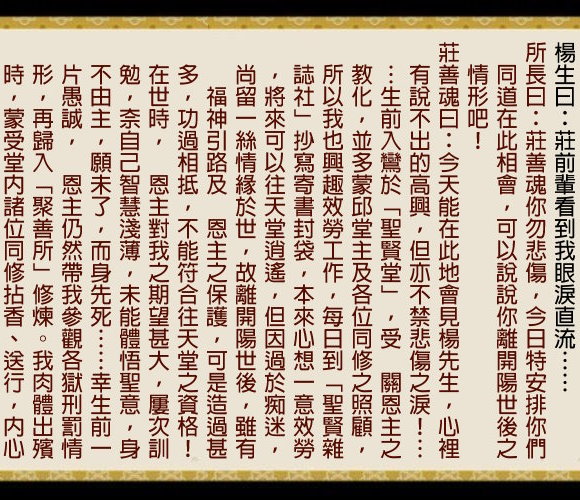 楊生曰：莊前輩看到我眼淚直流……
所長曰：莊善魂你勿悲傷，今日特安排你們
同道在此相會，可以說說你離開陽世後之
情形吧！
莊善魂曰：今天能在此地會見楊先生，心裡
有說不出的高興，但亦不禁悲傷之淚！…
…生前入鸞於「聖賢堂」，受　關恩主之
教化，並多蒙邱堂主及各位同修之照顧，
所以我也興趣效勞工作，每日到「聖賢雜
誌社」抄寫寄書封袋，本來心想一意效勞
，將來可以往天堂逍遙，但因過於痴迷，
尚留一絲情緣於世，故離開陽世後，雖有
福神引路及　恩主之保護，可是造過甚
多，功過相抵，不能符合往天堂之資格！
在世時，　恩主對我之期望甚大，屢次訓
勉，奈自己智慧淺薄，未能體悟聖意，身
不由主，願未了，而身先死……幸生前一
片愚誠，　恩主仍然帶我參觀各獄刑罰情
形，再歸入「聚善所」修煉。我肉體出殯
時，蒙受堂内諸位同修拈香、送行，内心